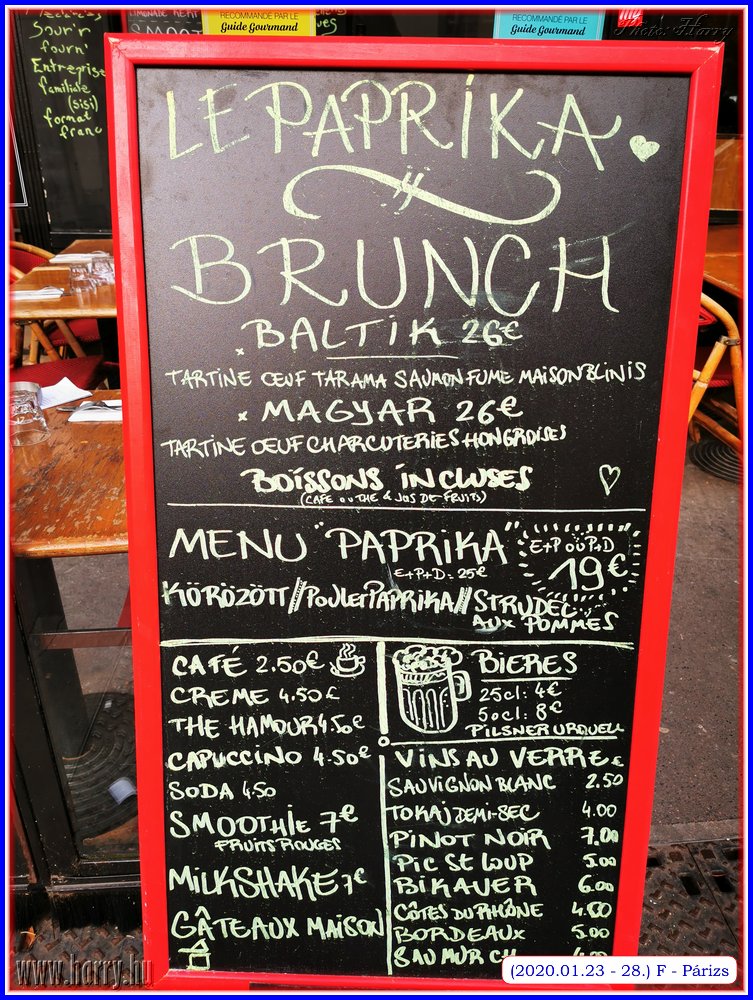 RECOMMANDÉ PAR LE
Guide Gourmand
RECOMMANDÉ PAR LE
Guide Gourmand
Photo: Harry
Sour'r
fourn'
Entreprise
familiale
(sisi)
format
franc
LE PAPRIKA
BRUNCH
x BALTIK 26€
TARTINE OEUF TARAMA SAUMON FUME MAISON BLINIS
x MAGYAR 26€
TARTINE OEUF CHARCUTERIES HONGROISES
BOISSONS INCLUSES
(CAFE OU THE & JUS DE FRUITS)
MENU "PAPRIKA"
E+P+D = 25€
E+P OU P+D
19€
KÖRÖZÖTT//POULET PAPRIKA//STRUDEL
AUX POMMES
CAFÉ 2.50€
CREME 4.50€
THE HAMOUR 4.50€
CAPUCCINO 4.50€
SODA 4.50
SMOOTHIE 7€
FRUITS ROUGES
MILKSHAKE 7€
GÂTEAUX MAISON
BIERES
25cl: 4€
50cl: 8€
PILSNER URQUELL
VINS AU VERRE €
SAUVIGNON BLANC 2.50
TOKAJ DEMI-SEC 4.00
PINOT NOIR 7.00
PIC ST LOUP 5.00
BIKAVER 6.00
CÔTES DU RHÔNE 4.60
BORDEAUX 5.00
SAUMUR CH
www.horry.hu
(2020.01.23 - 28.) F - Párizs